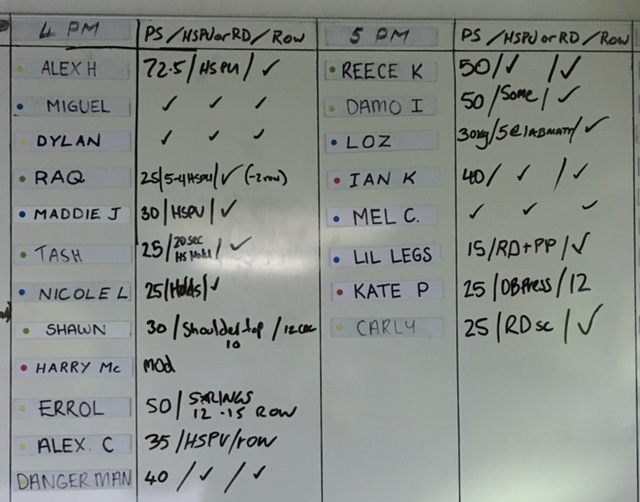 4 PM PS / HSPU or RD / ROW
ALEX H 72.5 / HSPU / ✓
MIGUEL ✓ ✓ ✓
DYLAN ✓ ✓ ✓
RAQ 25 / 5-4 HSPU / ✓ (-2 row)
MADDIE J 30 / HSPU / ✓
TASH 25 / 20 sec HS Hold / ✓
NICOLE L 25 / Holds / ✓
SHAWN 30 / Shoulder tap 10 / 12 cal
HARRY Mc mod
ERROL 50 / 5 12 - 15 ROW
ALEX. C 35 / HSPU / row
DANGERMAN 40 / ✓ / ✓
5 PM PS / HSPU or RD / ROW
REECE K 50 / ✓ / ✓
DAMO I 50 / Some / ✓
LOZ 30kg / 5 @ 1 ABMAT / ✓
IAN K 40 / ✓ / ✓
MEL C. ✓ ✓ ✓
LIL LEGS 15 / RD + PP / ✓
KATE P 25 / DB Press / 12
CARLY 25 / RD sc / ✓